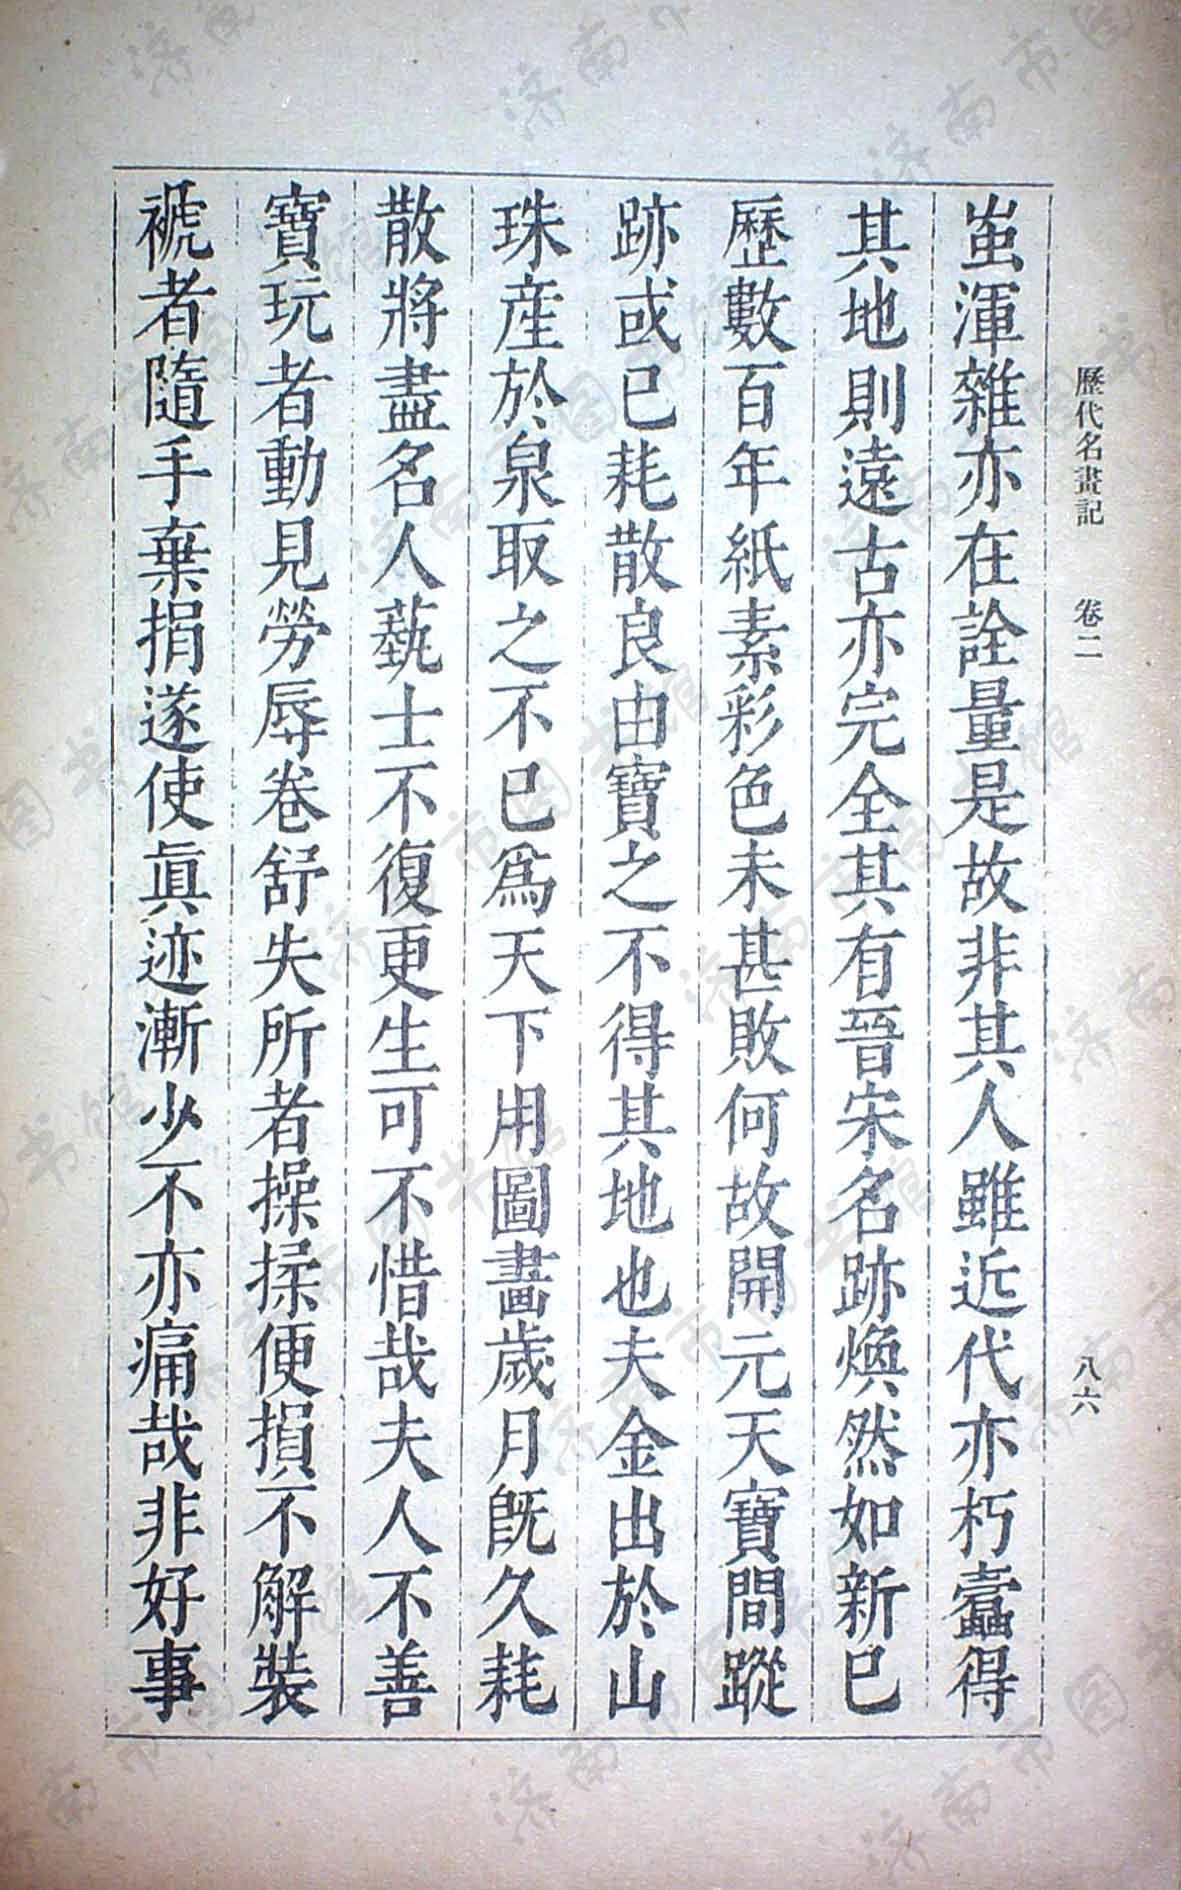 歷代名畫記　卷二　八六
蚩渾雜亦在詮量是故非其人雖近代亦朽蠹得
其地則遠古亦完全其有晉宋名跡煥然如新已
歷數百年紙素彩色未甚敗何故開元天寶間蹤
跡或已耗散良由寶之不得其地也夫金出於山
珠產於泉取之不已為天下用圖畫歲月既久耗
散將盡名人藝士不復更生可不惜哉夫人不善
寶玩者動見勞辱卷舒失所者操揉便損不解裝
褫者隨手棄捐遂使真迹漸少不亦痛哉非好事
济南市图书馆